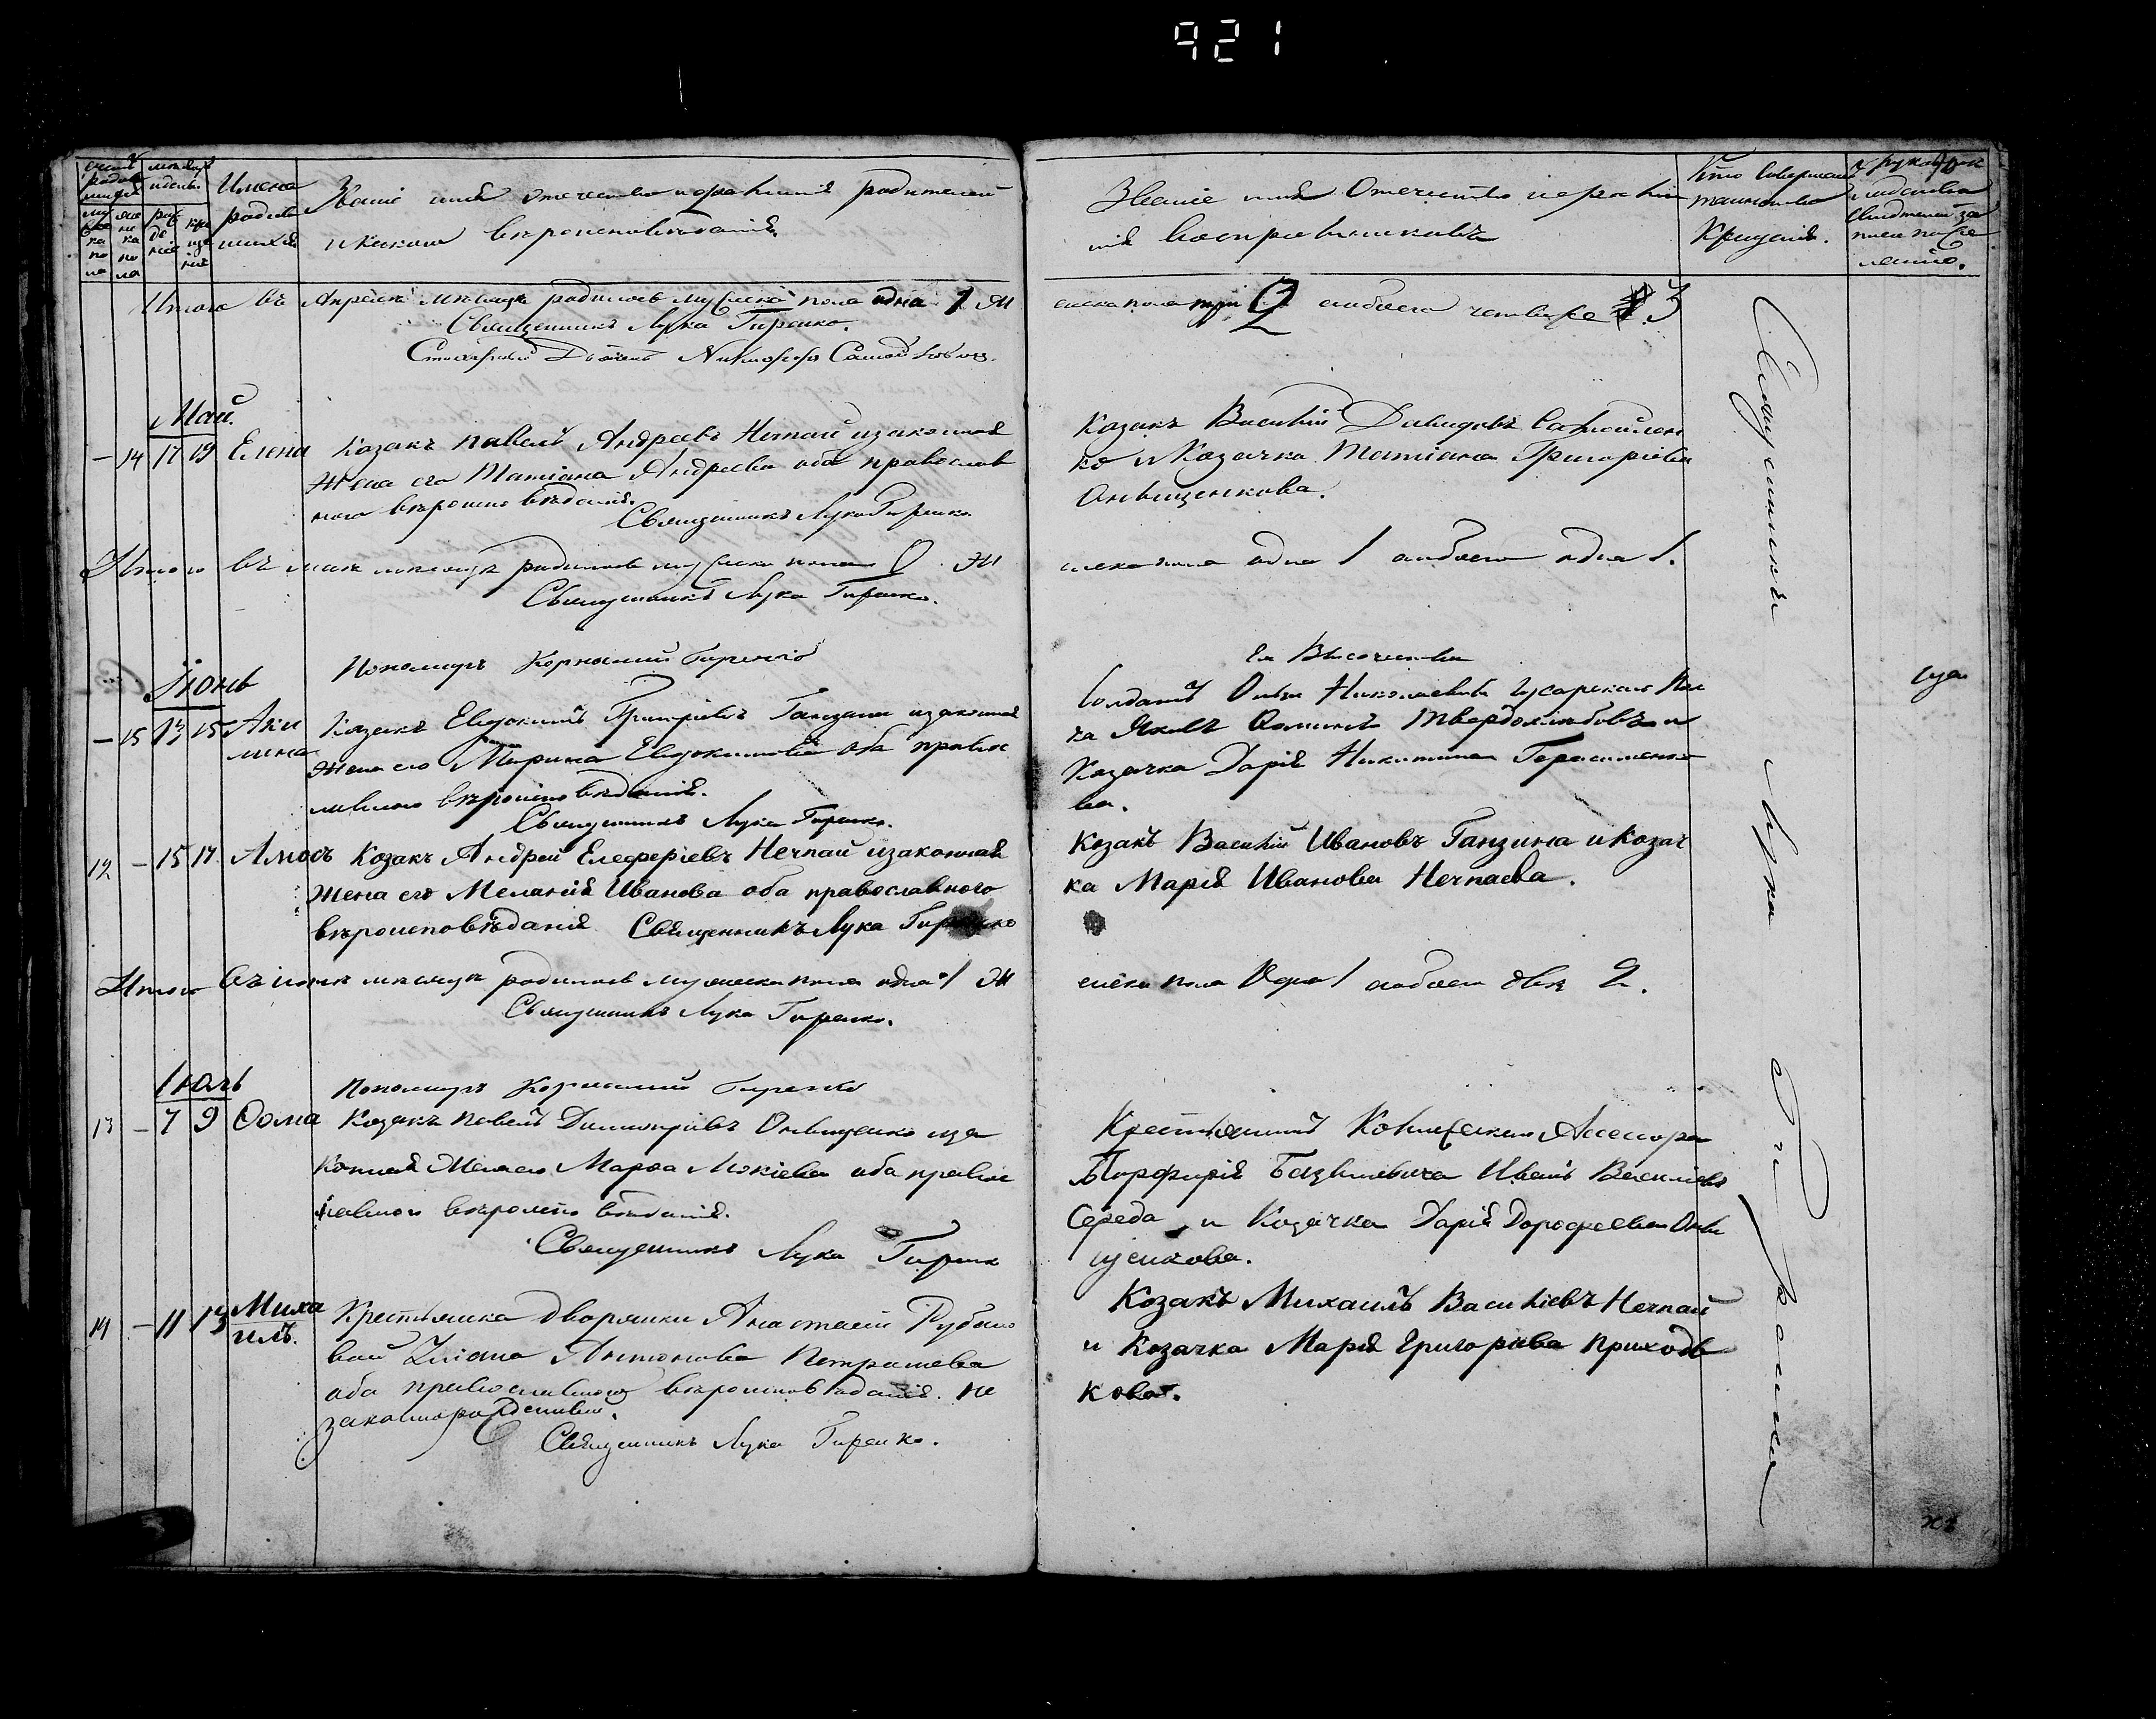 921
счетъ родив шихся
муж ска по ла
жен ска по ла
мѣсяцъ и день
рож де ніе
кре ще нія
Имена родив шихся
Званіе имя отечество и прозваніе родителей
и какого вѣроисповѣданія.
Званіе имя Отечество и прозва
ніе Воспріемниковъ
Кто совершалъ
таинство
Крещенія.
свидетелей за
писи по же
ланію.
Итого въ Апрѣлѣ мѣсяцѣ родилось мужеска пола одна 1 Ж
Священникъ Лука Гиренко.
Діаконъ Никифоръ
енска пола три 2 обоего четыре 3
Май
— 14 17 19 Елена Козакъ Павелъ Андреевъ Нечпай и законная
жена его Татіана Андреева оба православ
ного вѣроисповѣданія.
Священникъ Лука Гиренко
Козакъ Василій Давидовъ Самойлен
ко и Козачка Татіана Григоріева
Онищенкова.
Итого въ маѣ мѣсяцѣ родилось мужеска пола 0 Ж
Священникъ Лука Гиренко.
енска пола одна 1 обоего одна 1.
Пономарь Корнилій Гиренко
Іюнь
— 15 13 15 Аки
лина
Козакъ Евдокимъ Григоріевъ Ганзина и законная
жена его Марина Евдокимова оба правос
лавного вѣроисповѣданія.
Священникъ Лука Гиренко.
Ея Высочества
Солдатъ Ольги Николаевны Гусарскаго Пол
ка Яковъ Ѳоминъ Твердохлѣбовъ и
Козачка Дарія Никитина Герасименко
ва.
12 — 15 17 Амосъ Козакъ Андрей Елеѳеріевъ Нечпай и законная
жена его Меланія Иванова оба православного
вѣроисповѣданія Священникъ Лука Гиренко
Козакъ Василій Ивановъ Ганзина и Козач
ка Марія Иванова Нечпаева.
Итого въ іюнѣ мѣсяцѣ родилось мужеска пола одна 1 Ж
Священникъ Лука Гиренко.
енска пола Одна 1 обоего двѣ 2.
Іюль
Пономарь Корнилій Гиренко
13 — 7 9 Ѳома Козакъ Павелъ Димитріевъ Онищенко и за
конная жена его Марѳа Мокіева оба правос
лавного вѣроисповѣданія.
Священникъ Лука Гиренк
Крестьянинъ Колежскаго Асессора
Порфирія Базилевича Иванъ Василіевъ
Середа и Козачка Дарія Дорофеева Они
щенкова.
14 — 11 13 Миха
илъ.
Крестьянка дворянки Анастасіи Рубано
вой Уліана Антонова Петрашева
оба православного вѣроисповѣданія. не
законнорожденный.
Священникъ Лука Гиренко.
Козакъ Михаилъ Василіевъ Нечпай
и Козачка Марія Григоріева Приходь
кова.
Священникъ Лука Гиренко